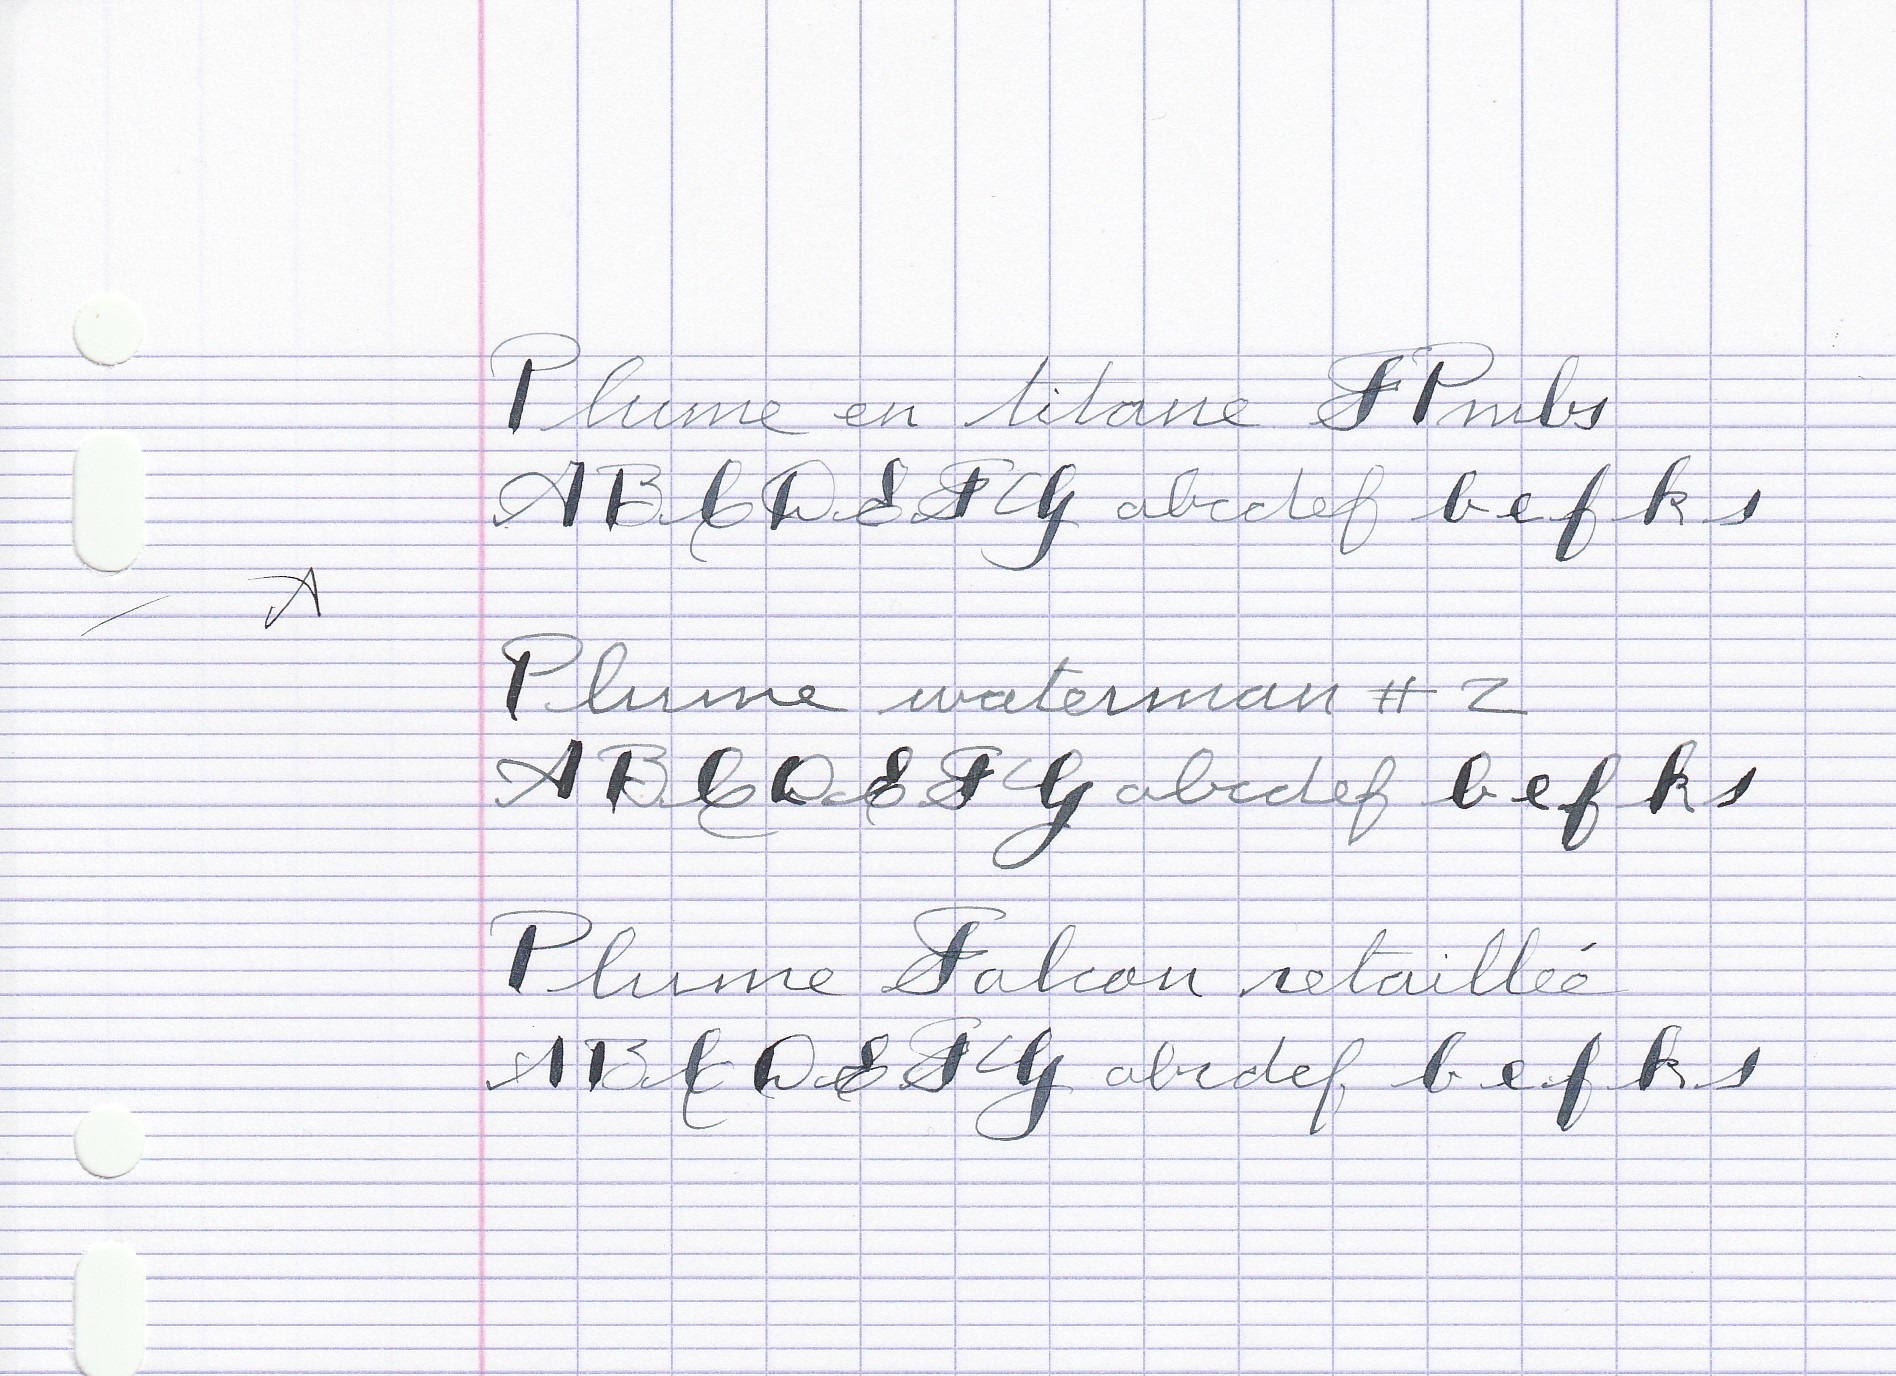 Plume en titane FPnibs
ABCDEFG abcdef b e f k s
A
Plume waterman # 2
ABCDEFG abcdef b e f k s
Plume Falcon retaillée
ABCDEFG abcdef b e f k s